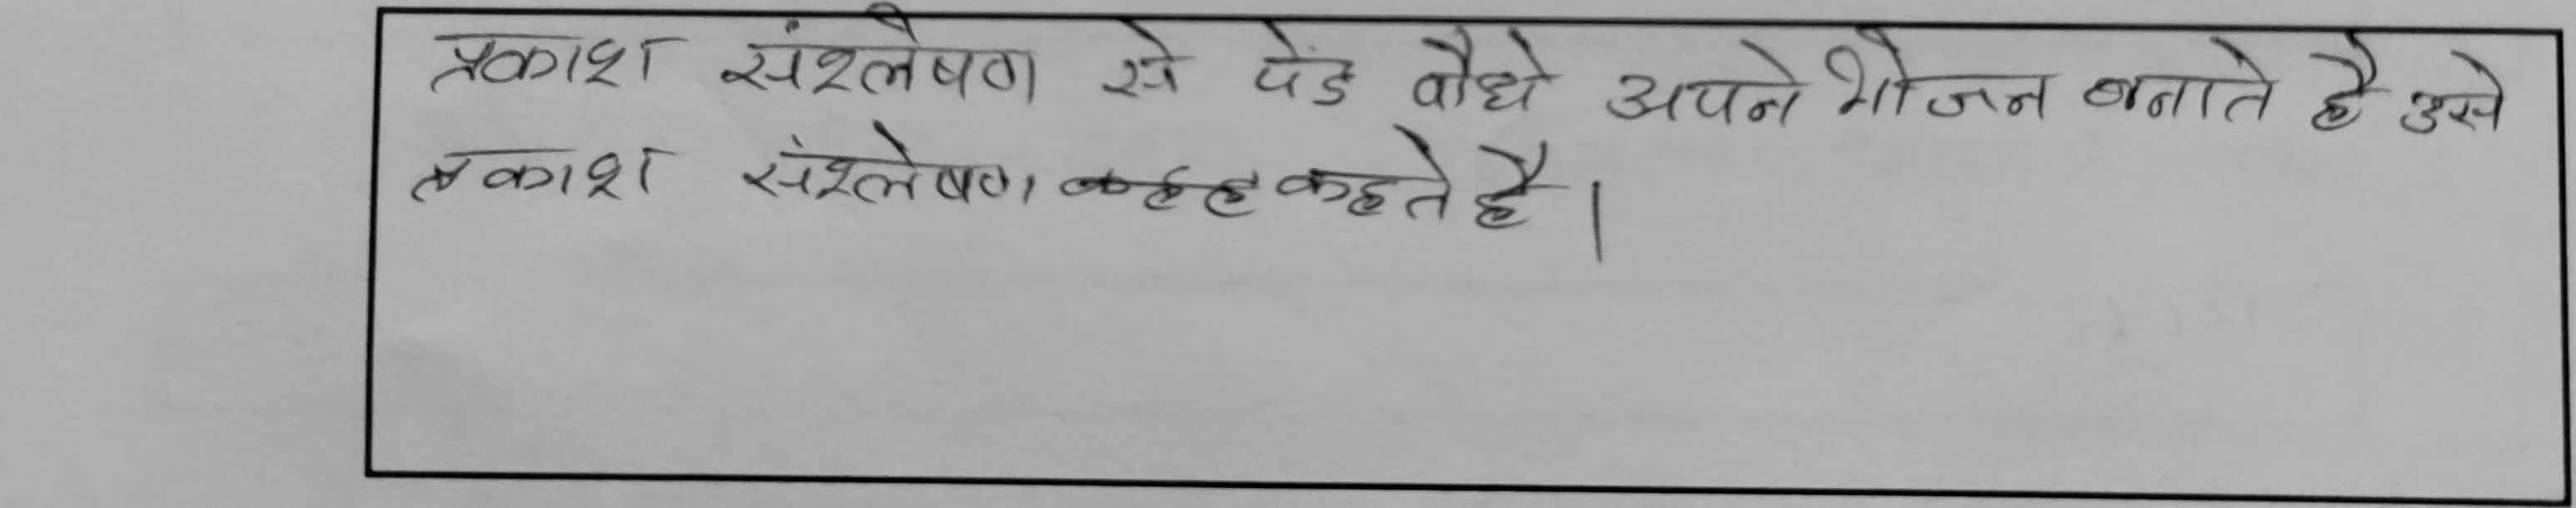 प्रकाश संश्लेषण से पेंड पौधे अपने भोजन बनाते है उसे
प्रकाश संश्लेषण कहते है।